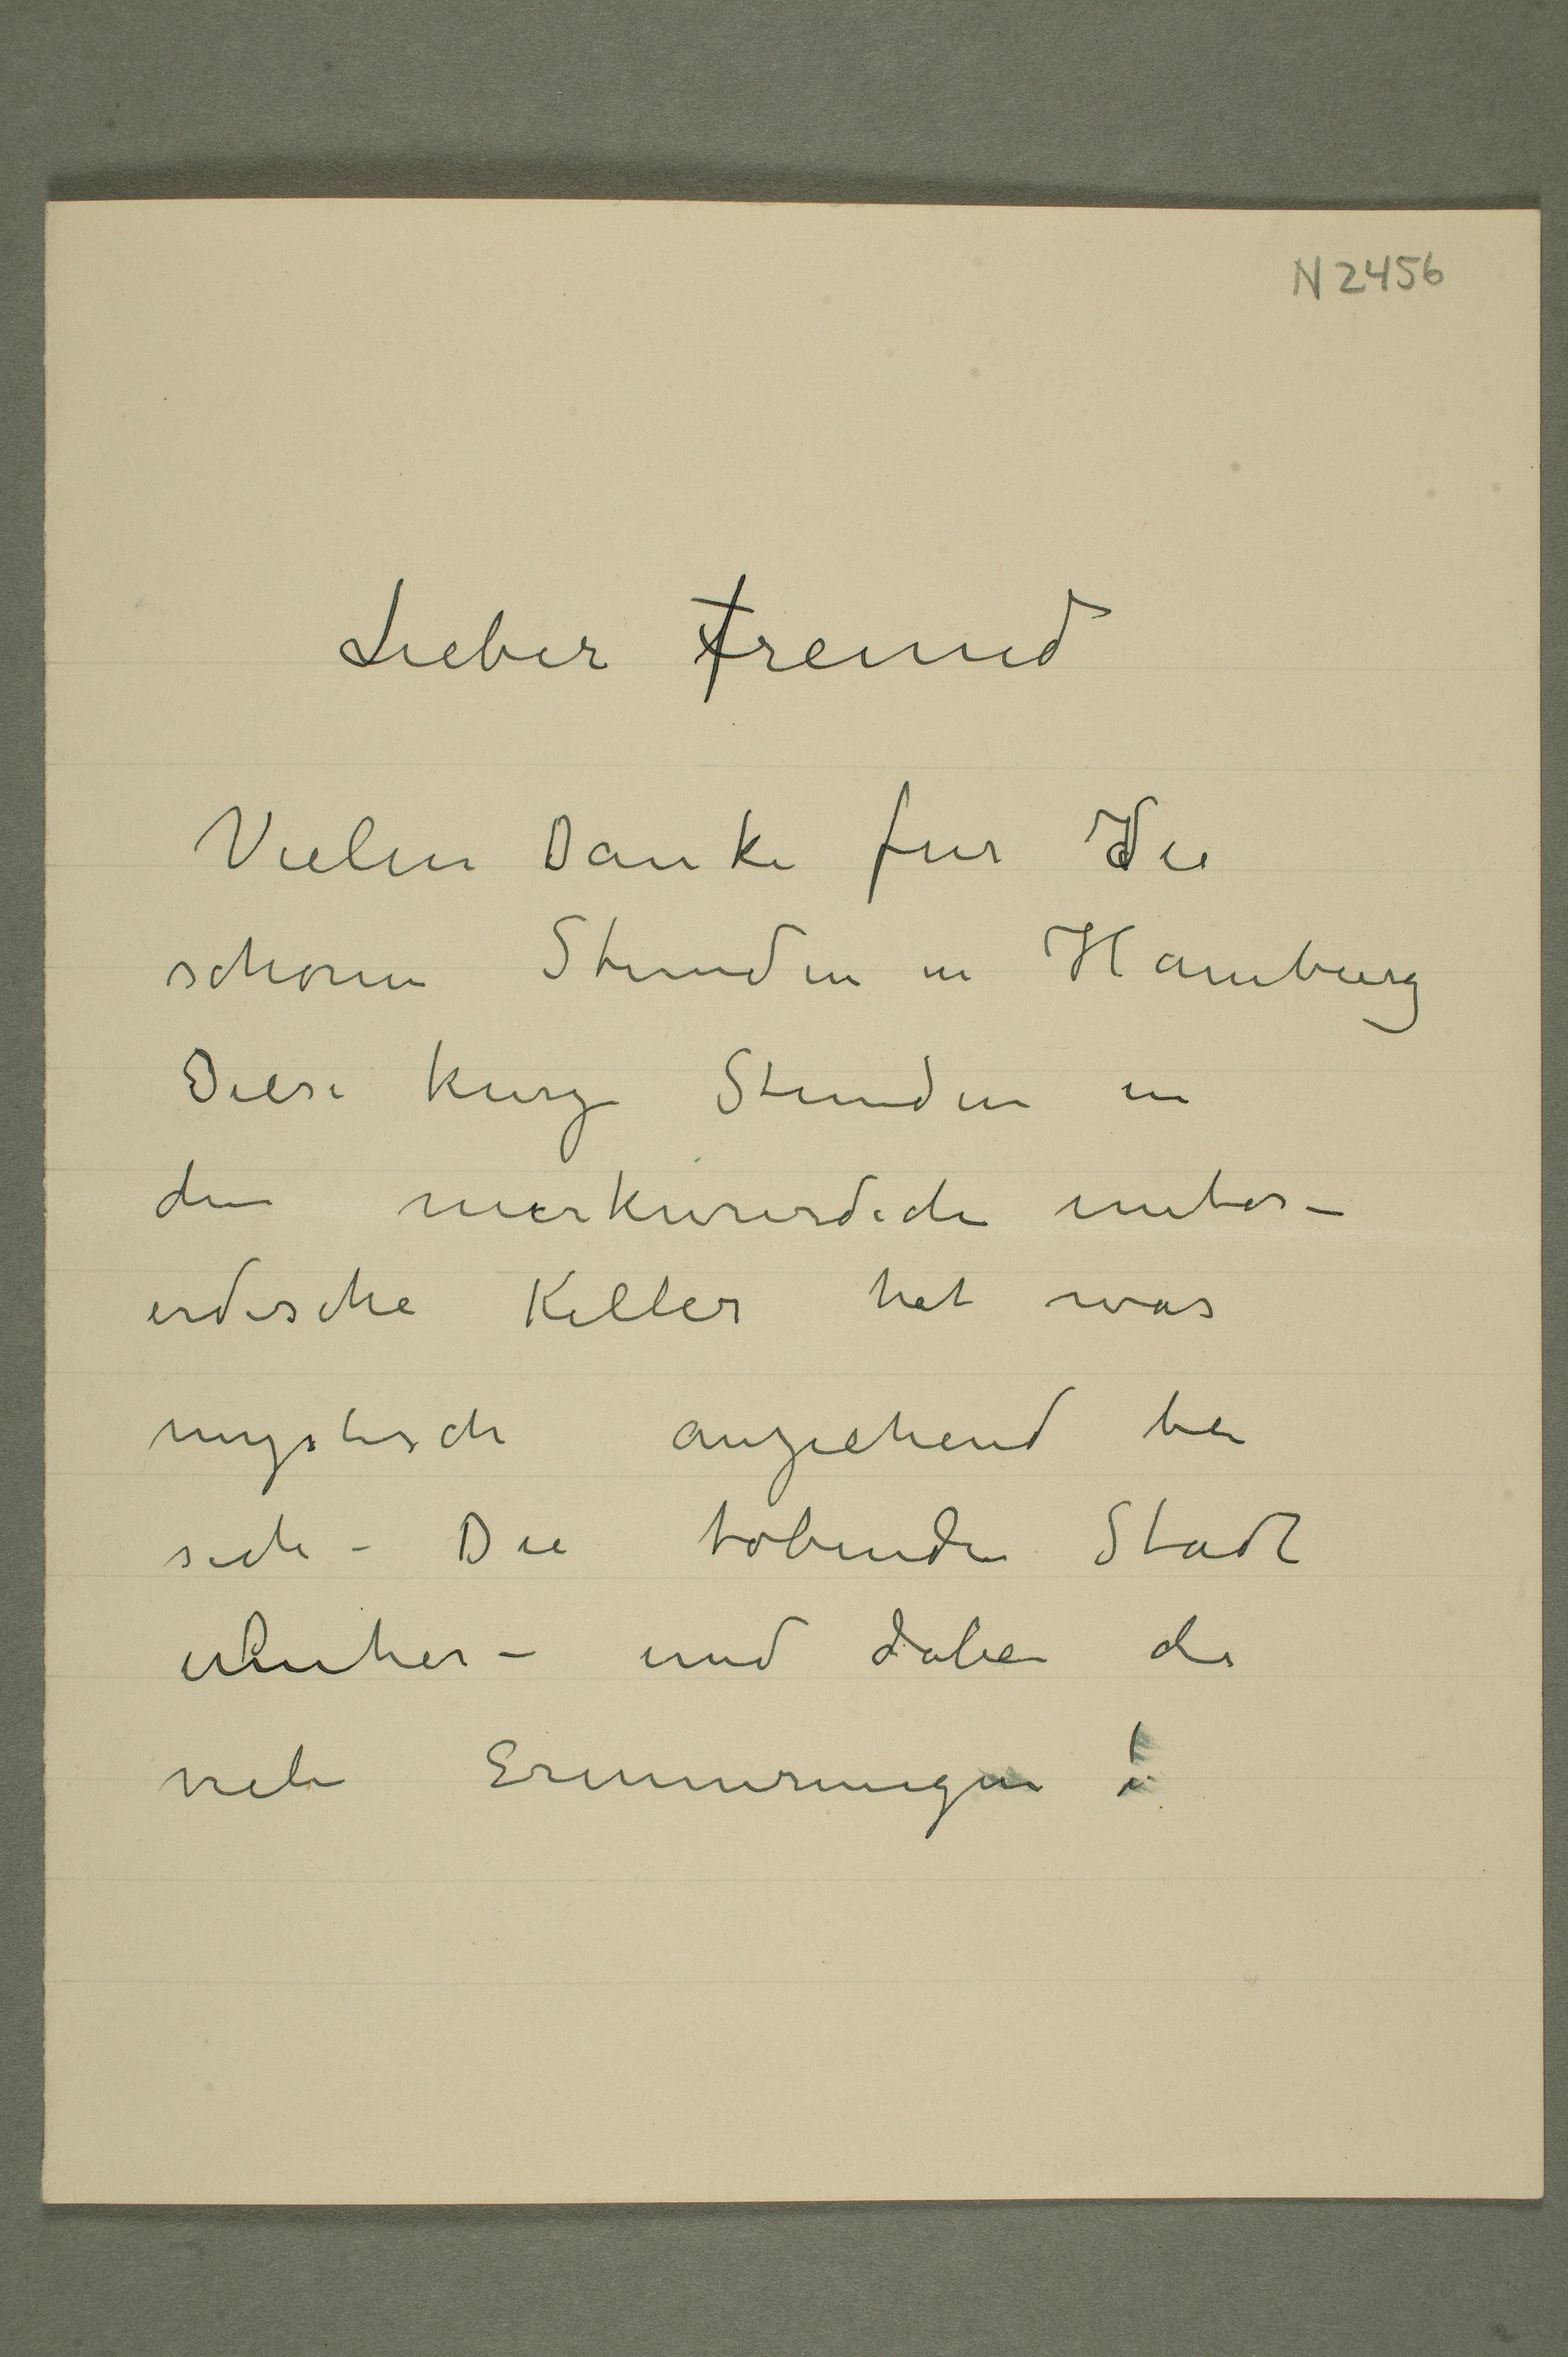 N 2456
Lieber Freund
Vielen Danke fur die
schonen Stunden in Hamburg
Diese kurze Stunden in
den merkwurdiche unter–
erdische Keller hat was
mystisch anziehend bei
sich – Die tobende Stadt
umher – und dabei die
viele Erinnerungen !